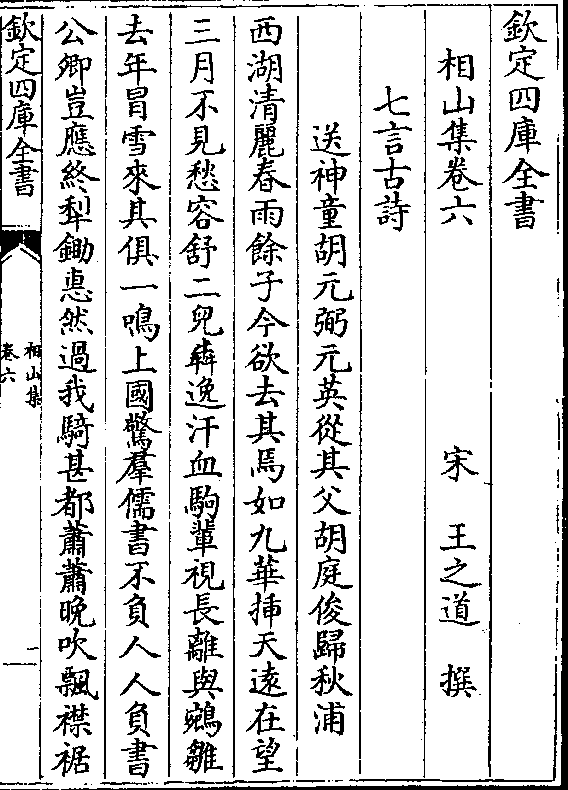 欽定四庫全書
相山集卷六　宋　王之道　撰
七言古詩
送神童胡元弼元英從其父胡庭俊歸秋浦
西湖清麗春雨餘子今欲去其焉如九華揷天遠在望
三月不見愁容舒二兒犇逸汗血駒輩視長離與鵷雛
去年冒雪來其俱一鳴上國驚羣儒書不負人人負書
公卿豈應終犁鋤惠然過我騎甚都蕭蕭晚吹飄襟裾
欽定四庫全書
相山集
卷六
一